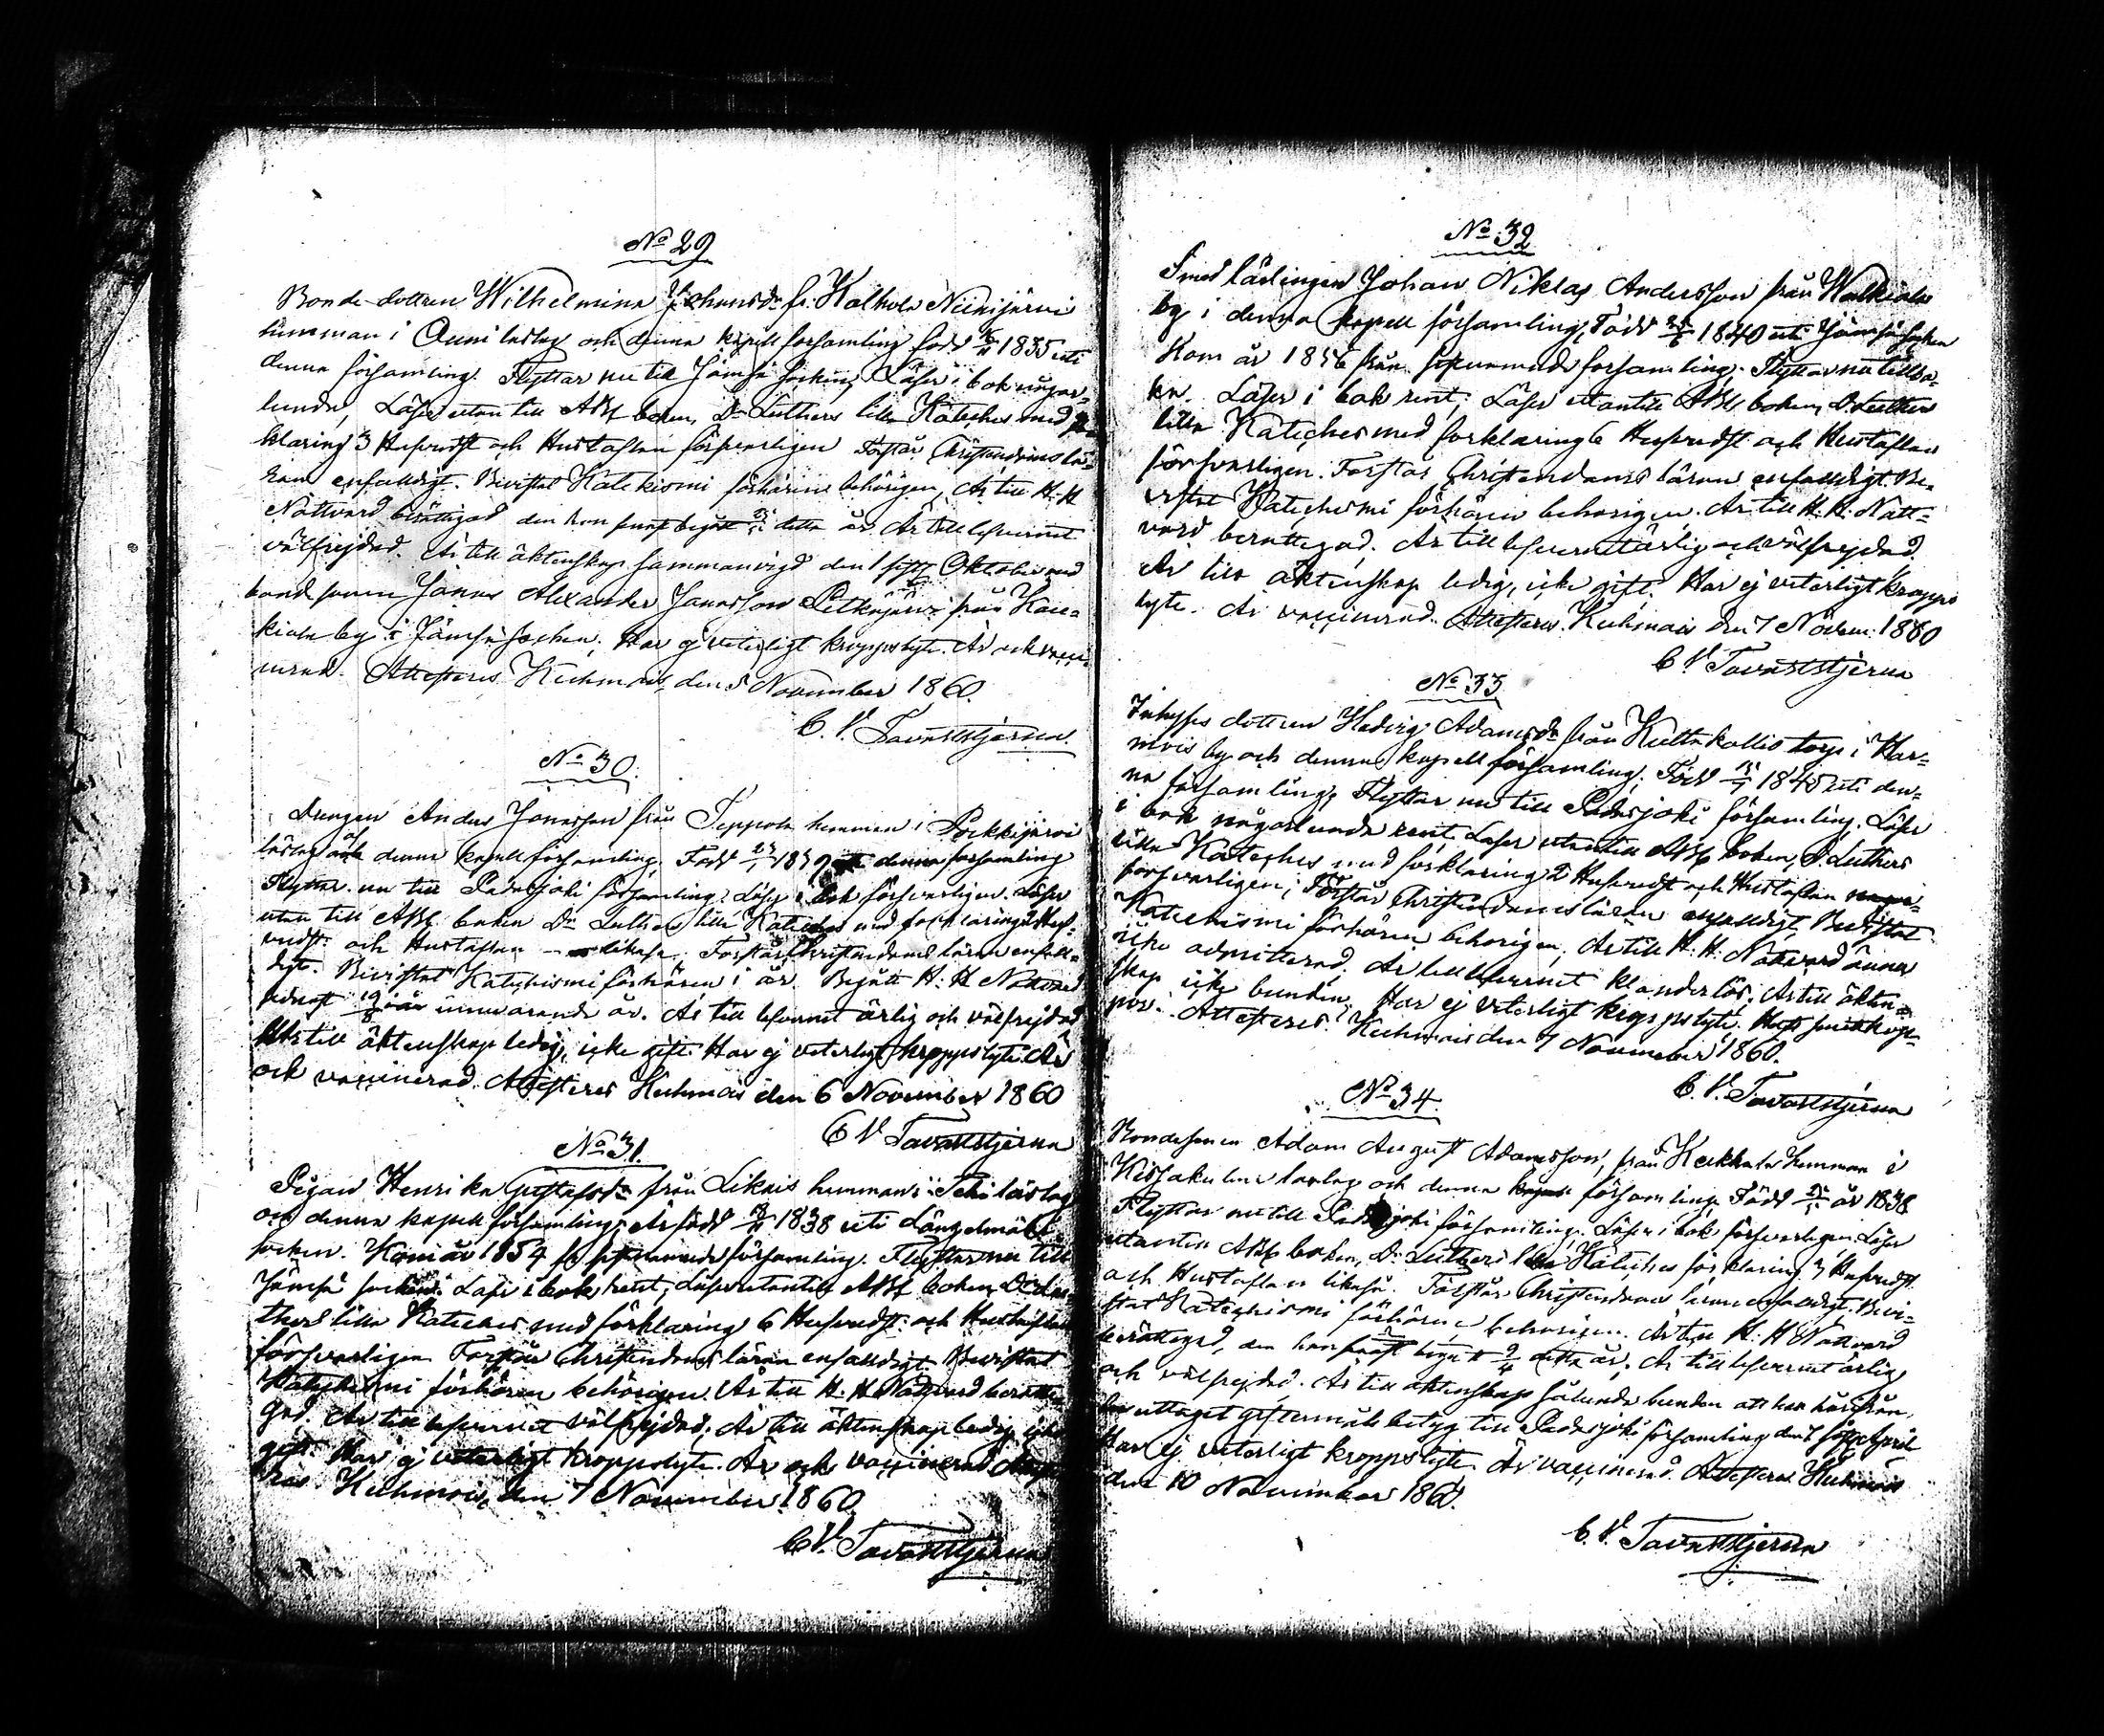 No 29
Bonde-dottren Wilhelmina Johansdr fr. Kalhola Niemijärvi
hemman i Onni lastag och denna kapell församling född 1835 uti
denna församling. Flyttar nu till Jämsä socken, Läser i bok någor-
lunda, Läser utan till ABC boken, Dr Luthers lilla Kateches med
klaring 3 Hufvudst och Hustaflan försvarligen Förstår Christendoms lä-
ran enfalldigt. Bevistat Katekismi förhören behörigen, Är till H. H
Nattvard berättigad den hon senast begått detta år. Är till lefvernet
välfrejdad. Är till äktenskap sammanvigd den 1 sistl Oktober med
bondsonen Jonas Alexander Jonasson Petkäjärvi från
kiala by i Jämsä socken, Har ej veterligt kroppslyte. Är ock vacci-
nerad. Attesteras Kuhmois, den 5 November 1860.
C. V. Tavaststjerna.
No 30.
Drengen Anders Jonasson från Seppola hemman i Pockkijärvi
lästag och denna kapell församling, Född denna församling
Flyttar nu till Padasjoki församling, Läser i bok försvarligen. Läser
utan till ABC boken Dr Luthers lilla Kateches med förklaring Huf-
vudst: och Hustaflan likaså. Förstår Christendoms läran enfall-
digt. Bevistat Katechismi förhören i år. Begått H. H Nattvard
sednast 19/8 innevarande år. Är till lefvernet ärlig och välfrejdad
Är till äktenskap ledig, icke gift. Har ej veterligt kroppslyte. Är
ock vaccinerad. Attesteras Kuhmois den 6 November 1860
C V Tavaststjerna
No 31.
Pigan Henrika Gustafsdr från Liknis hemman i Tehi lästag
och denna kapell församling, Är född 1838 uti Längelmäki
socken. Kom år 1854 fr. församling. Flyttar nu till
Jämsä socken. Läser i bok rent; Läser utantill ABC boken, Dr Lu-
thers lilla Kateches med förklaring 6 Hufvudst. och Hustaflan
försvarligen Förstår Christendoms läran enfalldigt Bevistat
Katechismi förhören behörigen. Är till H. H Nattvard berätti-
gad. Är till lefvernet välfrejdad. Är till äktenskap ledig, icke
gift. Har ej veterligt kroppslyte. Är ock vaccinerad Atteste-
ras. Kuhmois, den 7 November 1860.
C V. Tavaststjerna
No 32
Smed lärlingen Johan Niklas Andersson från Walkiala
by i denna kapell församling, Född 1840 uti Jämsä socken
Kom år 1856 från församling. Flyttar nu tillba-
ka. Läser i bok rent, Läser utantill ABC boken, D. Luthers
lilla Kateches med förklaring 6 Hufvudst. och Hustaflan
försvarligen. Förstår Christendoms läran enfalldigt. Be-
vistat Katechismi förhören behörigen. Är till H. H. Natt-
vard berättigad. Är till lefvernet ärlig och välfrejdad.
Är till äktenskap ledig, icke gift. Har ej veterligt kropps
lyte. Är vaccinerad. Attesteras. Kuhmois den 7 Novem. 1860
C V. Tavaststjerna
No 33
Inhyses dottren Hedvig Adamsdr från Kultakallio torp i Har-
mois by och denna kapell församling, Född 1845 uti den-
na församling, Flyttar nu till Padasjoki församling. Läser
i bok någorlunda rent. Läser utantill ABC boken, D. Luthers
lilla Kateches med förklaring 2 Hufvudst och Hustaflan
försvarligen, Förstår Christendoms läran enfalldigt. Bevistat
Katechismi förhören behörigen, Är till H. H. Nattvard ännu
icke admitterad. Är till lefvernet klanderlös. Är till äkten-
skap icke bunden. Har ej veterligt kroppslyte. Haft smittkop-
por. Attesteras. Kuhmois den 7 November 1860.
C. V. Tavaststjerna
No 34.
Bondesonen Adam August Adamsson, från hemman i
Kissakulma lastag och denna kapell församling, Född år 1838
Flyttar nu till Padasjoki församling. Läser i bok försvarligen Läser
utantill ABC boken, Dr Luthers lilla Kateches förklaring 3 Hufvudst
och Hustaflan likaså. Förstår Christendoms läran enfalldigt. Bevi-
stat Katechismi förhören behörigen. Är till H. H Nattvard
berättigad, den han senast begått 9/4 detta år. Är till lefvernet ärlig
och välfrejdad. Är till äktenskap sålunda bunden att han härifrån
uttaget giftermåls betyg till Padasjoki församling April
Har ej veterligt kroppslyte. Är vaccinerad. Attesteras Kuhmois
den 10 November 1860.
C. V. Tavaststjerna